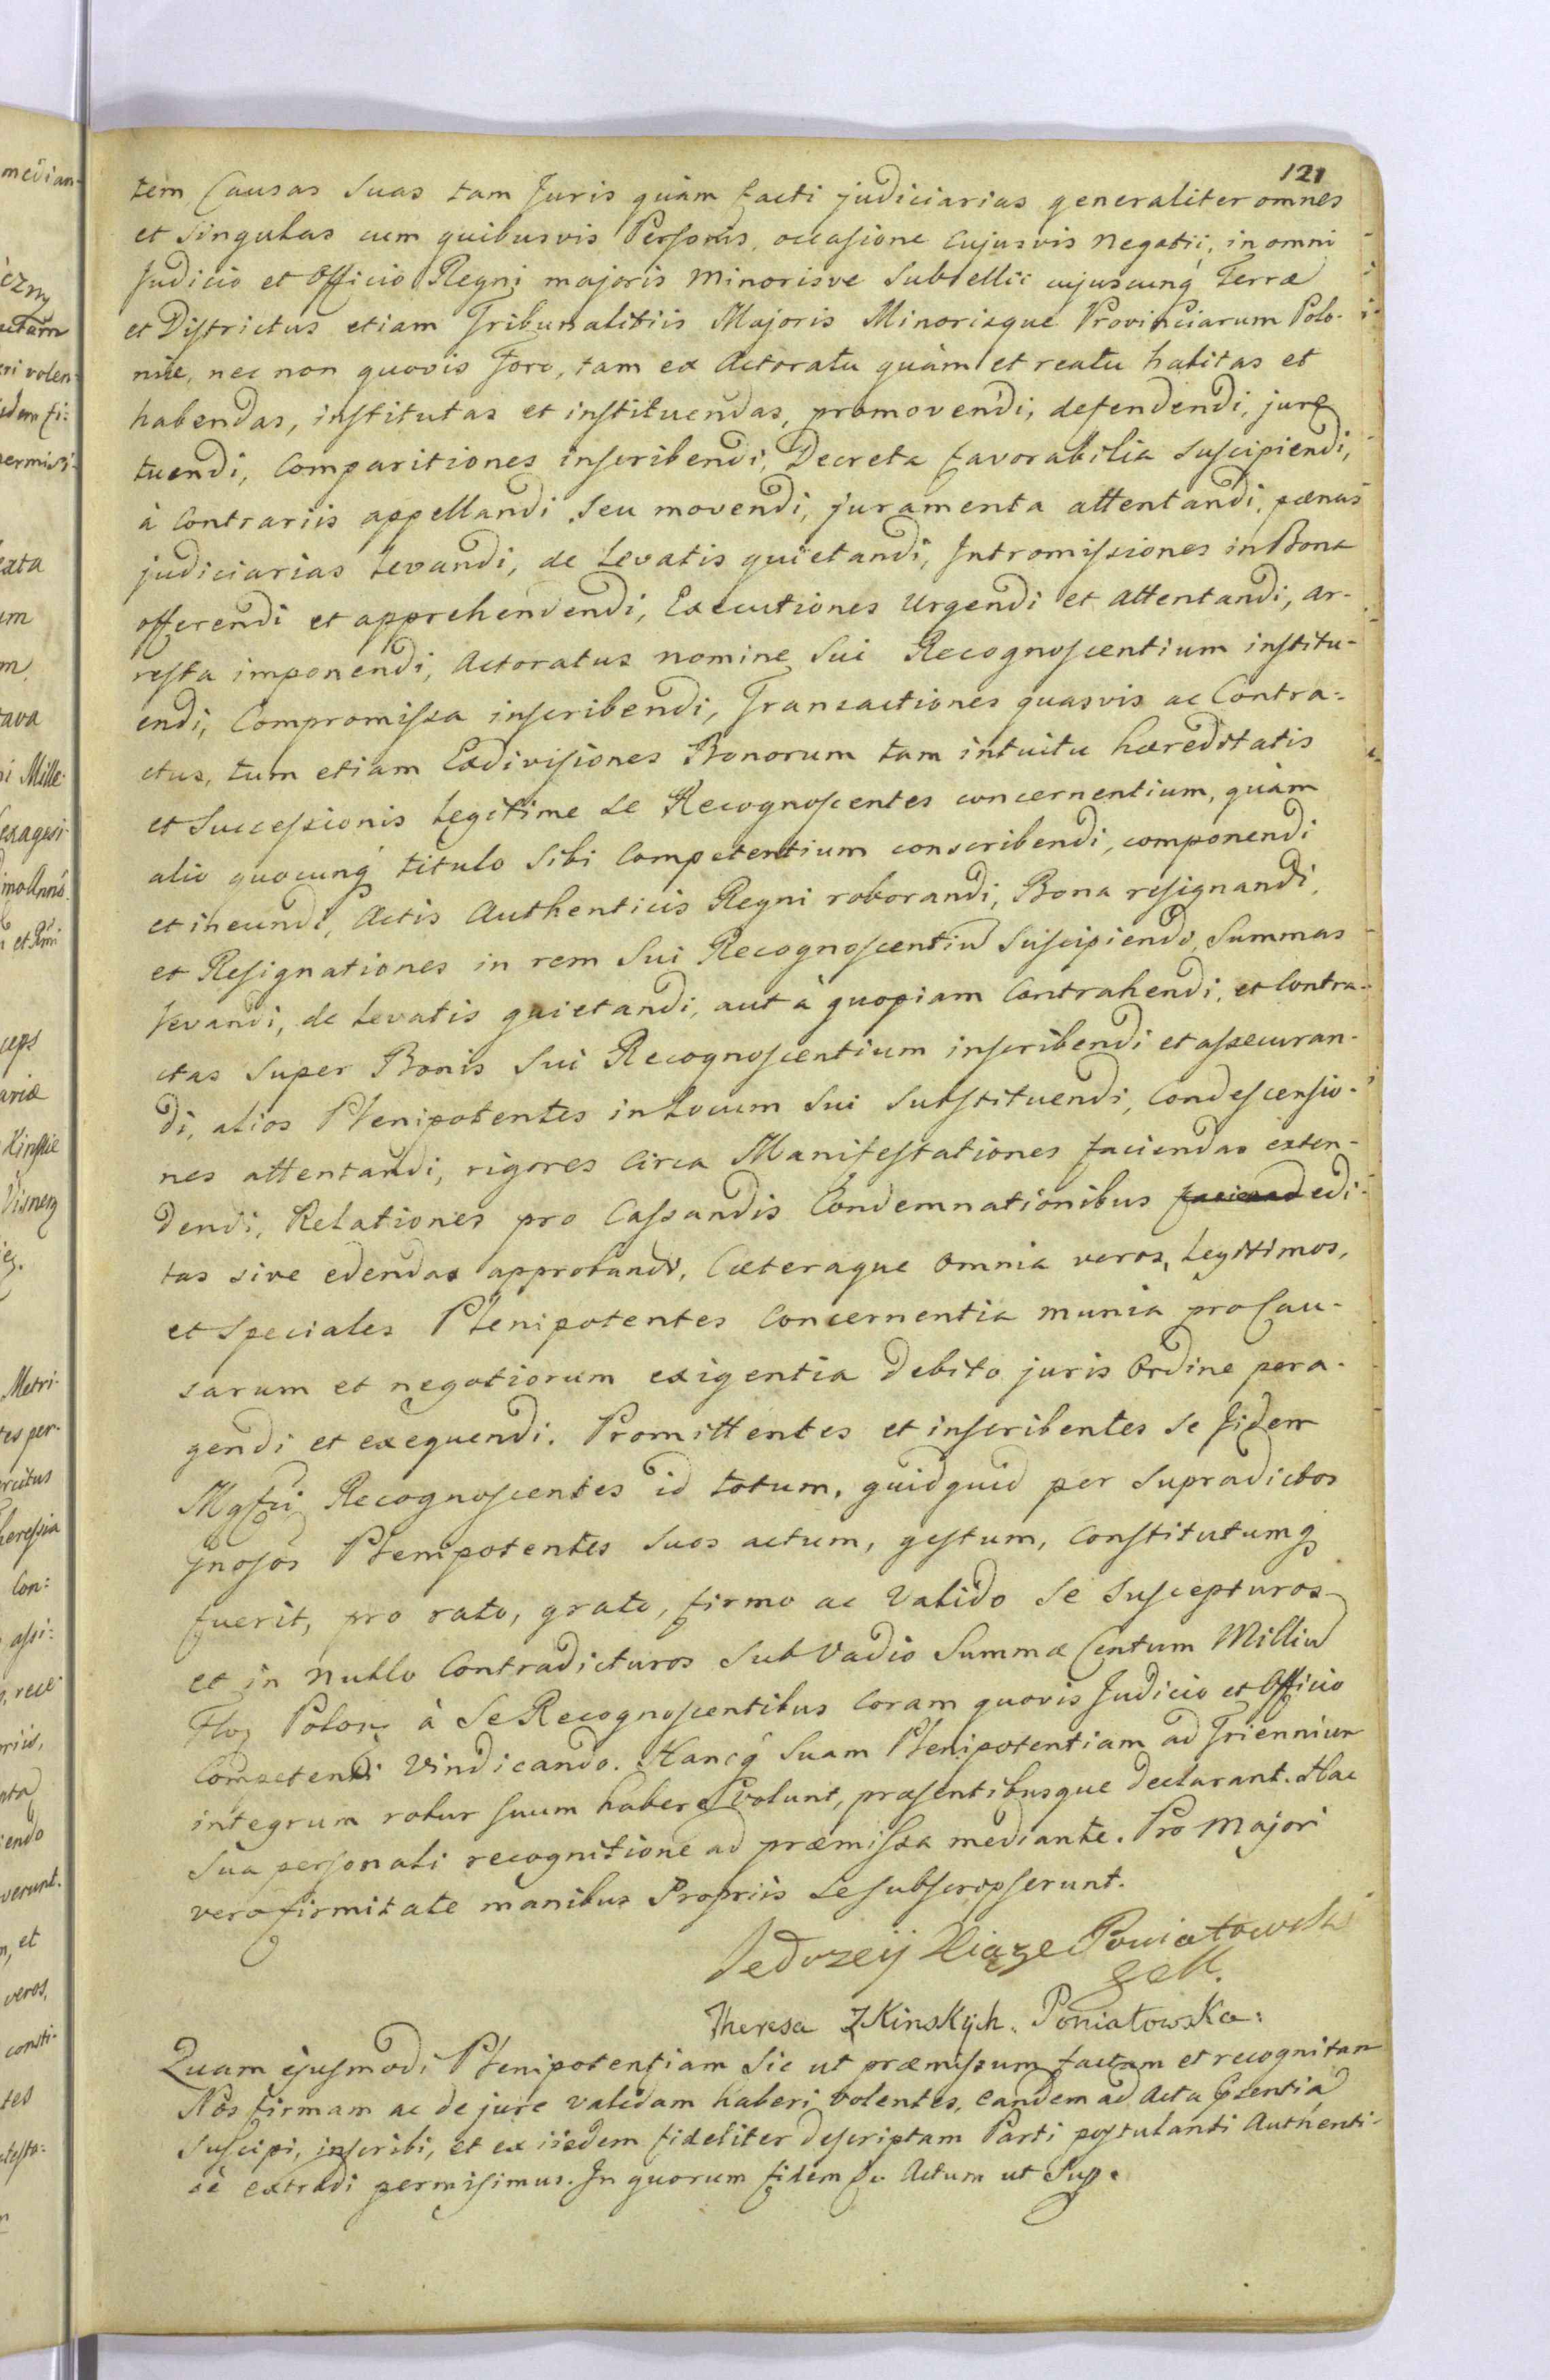 121
tem Causas Suas tam Juris quàm facti judiciarias generaliter omnes
et Singulas cum quibusvis Personis, occasione Cujusvis Negotii, in omni
Judicio et Officio Regni majoris Minorisve Subsellii cujuscunq́ Terræ
et Districtus etiam Tribunalitiis Majoris Minorisque Provinciarum Polo-
niæ, nec non quovis Foro, tam ex Actoratu quàm et reatu habitas et
habendas, institutas et instituendas, promovendi, defendendi, jure
tuendi, Comparitiones inscribendi, Decreta favorabilia suscipiendi,
à Contrariis appellandi seu movendi, juramenta attentandi, pænas
judiciarias Levandi, de Levatis quietandi, Intromissiones in Bona
offerendi et apprehendendi, Executiones Urgendi et attentandi, ar-
resta imponendi, Actoratus nomine Sui Recognoscentium institu-
endi, Compromissa inscribendi, Transactiones quasvis ac Contra-
ctus, tum etiam Exdivisiones Bonorum tam intuitu hæreditatis
et Successionis Legitime se Recognoscentes concernentium, quàm
alio quocunq́ titulo Sibi Competentium conscribendi, componendi
et ineundi, Actis Authenticis Regni roborandi, Bona resignandi,
et Resignationes in rem Sui Recognoscentiū Suscipiendi, Summas
Levandi, de Levatis quietandi, aut à quopiam Contrahendi, et Contra-
ctas Super Bonis Sui Recognoscentium inscribendi et assecuran-
di, alios Plenipotentes in Locum Sui Substituendi, Condescensio-
nes attentandi, rigores Circa Manifestationes faciendas exten-
dendi, Relationes pro Cassandis Condemnationibus edi-
tas sive edendas approbandi, Cæteraque Omnia veros, Legitimos,
et Speciales Plenipotentes Concernentia munia pro Cau-
sarum et negotiorum exigentia Debito juris Ordine pera-
gendi et exequendi. Promittentes et inscribentes Se Iidem
Mgfci Recognoscentes id totum, quidquid per Supradictos
Gnosos Plenipotentes Suos actum, gestum, Constitutumq́
fuerit, pro rato, grato, firmo ac Valido Se Suscepturos
et in Nullo Contradicturos Sub Vadio Summæ Centum Milliū
Flor Polon à Se Recognoscentibus Coram quovis Judicio et Officio
Competenti Vindicando. Hancq́ Suam Plenipotentiam ad Triennium
integrum robur Suum habere Volunt, præsentibusque Declarant. Hac
Sua personali recognitione ad præmissa mediante. Pro Majori
vero firmitate manibus Propriis Se subscripserunt.
Jedrzeij Xiąze Poniatowski
Theresa Z Kinských. Poniatowska:
Quam ejusmodi Plenipotentiam Sic ut præmissum factam et recognitam
Nos firmam ac de jure validam haberi volentes, eandem ad Acta Pŝentia
Suscipi, inscribi, et ex iisdem fideliter Descriptam Parti postulanti Authenti-
cè extradi permisimus. In quorum fidem Actum ut Supr.